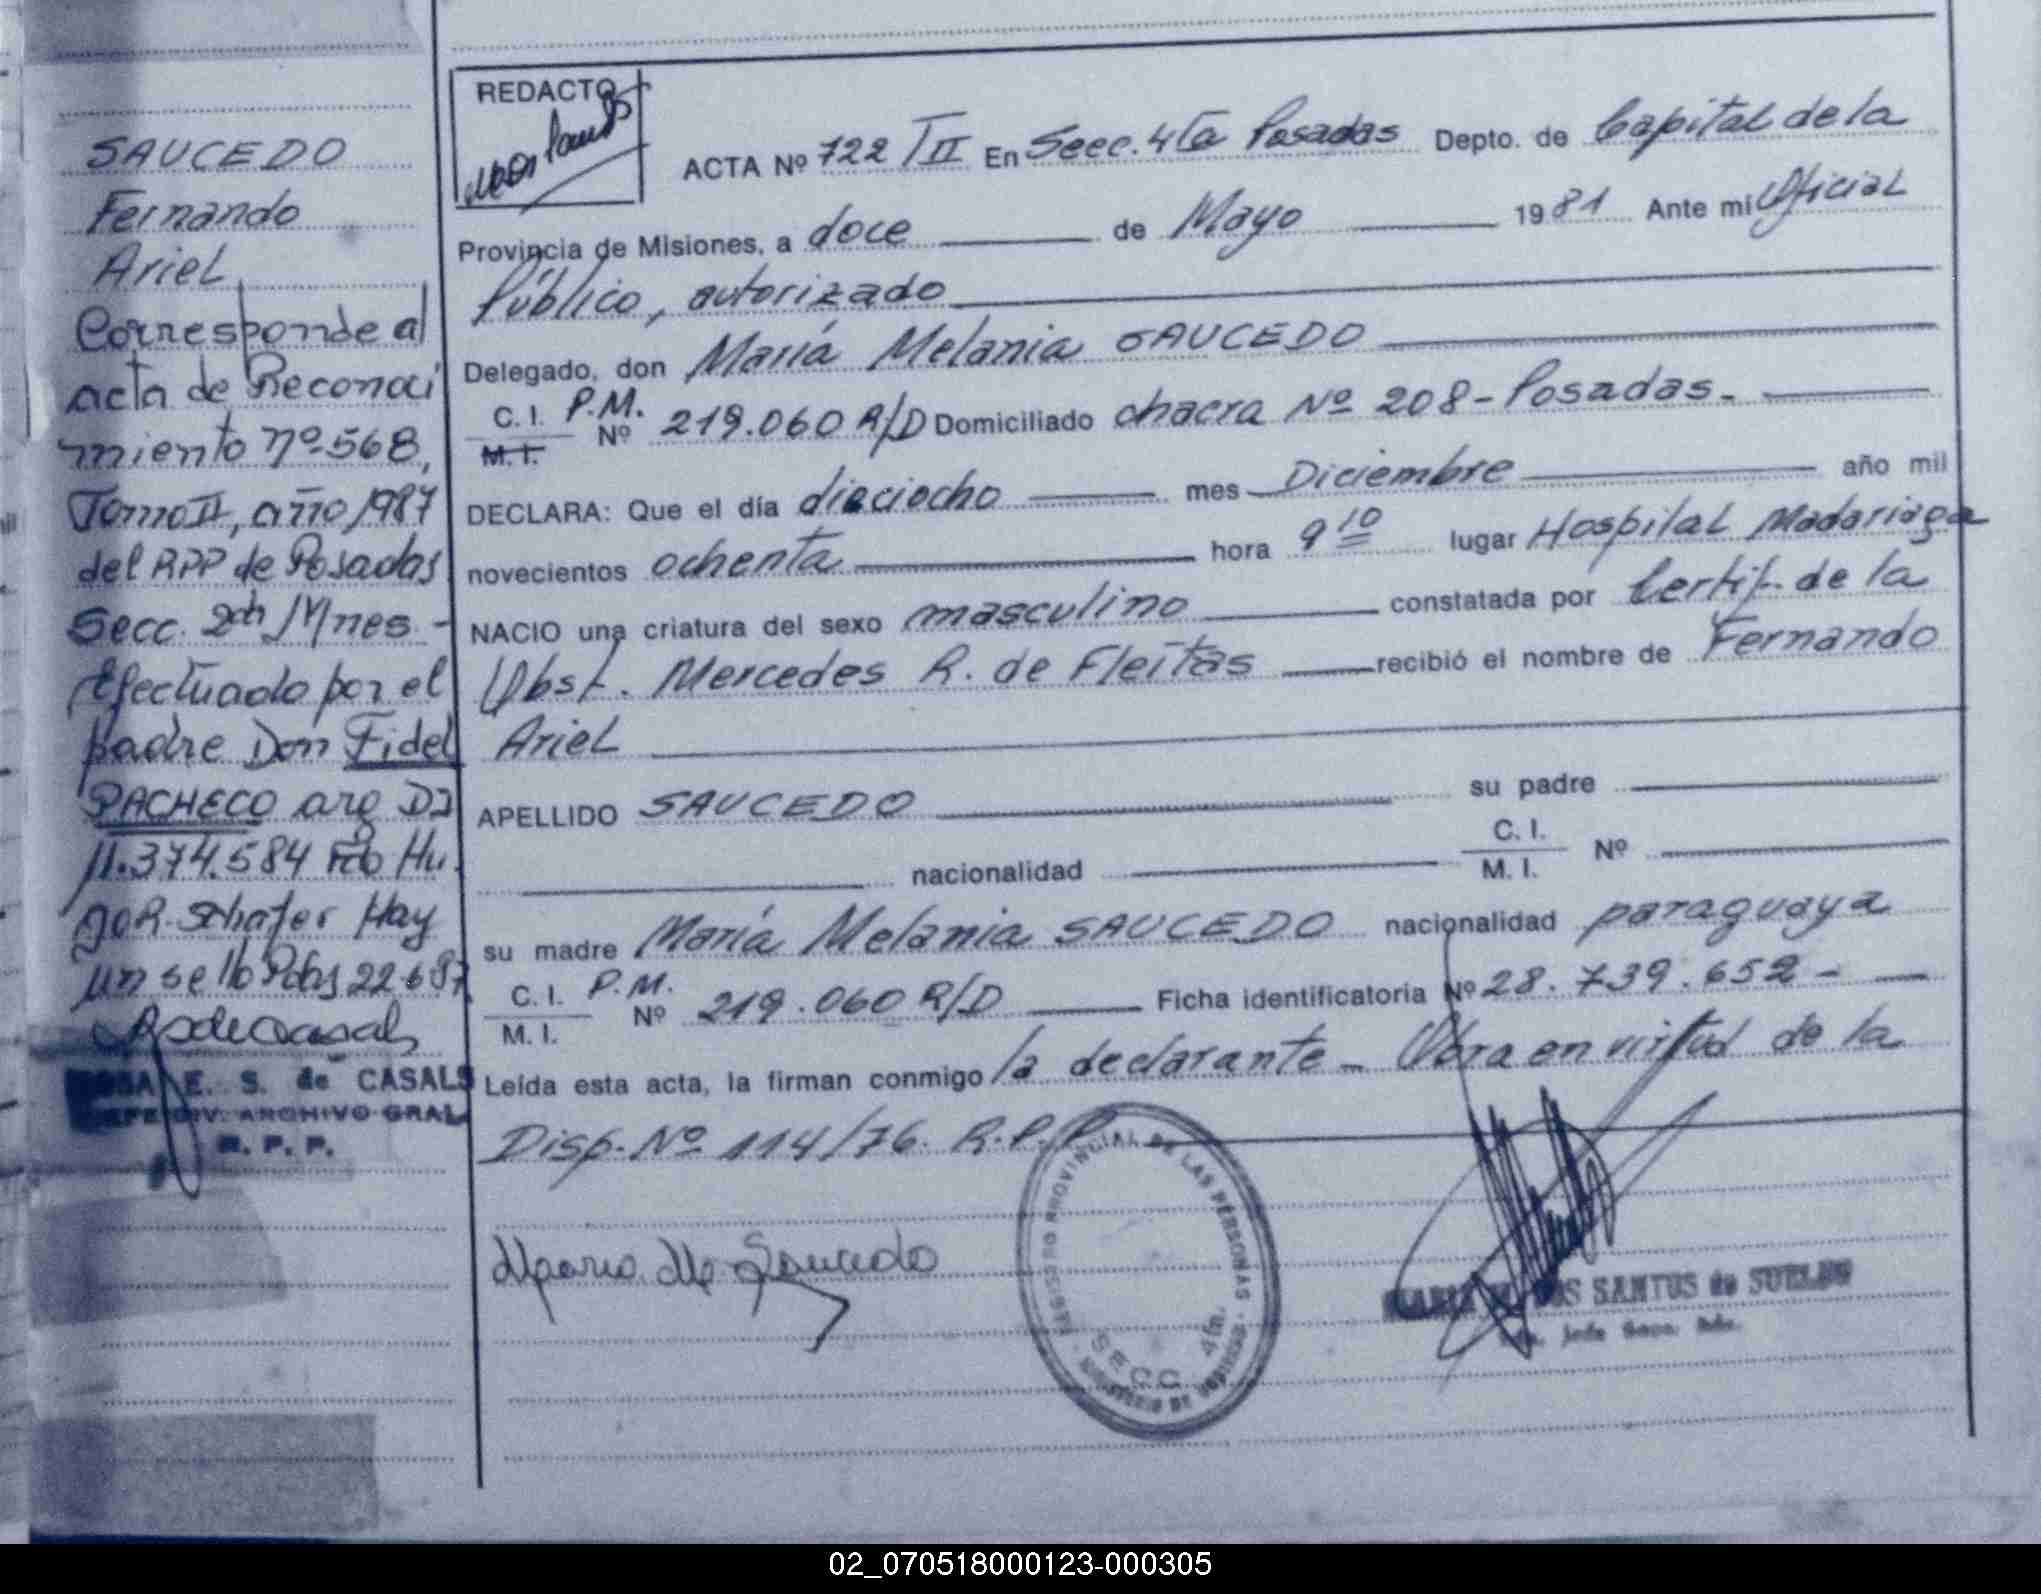 SAUCEDO
Fernando
Ariel
Corresponde al
acta de Reconoci
miento nº 568,
Tomo II, año 1987
del RPP de Posadas
Secc. 2da Mnes -
Efectuado por el
padre Don Fidel
PACHECO arg DI
11.374.584 Fdo Hu
go R. Schafer Hay
un sello Pdas 22-6-87
E. S. de CASALS
JEFE DIV. ARCHIVO GRAL
R. P. P.
REDACTO
ACTA Nº 722 T II En Secc. 4ta Posadas Depto. de Capital de la
Provincia de Misiones, a doce de Mayo 1981 Ante mi Oficial
Público, autorizado
Delegado, don María Melania SAUCEDO
C. I. P.M.
M. I. Nº 219.060 R/D Domiciliado chacra Nº 208 - Posadas.-
DECLARA: Que el día dieciocho mes Diciembre año mil
novecientos ochenta hora 9 10 lugar Hospital Madariaga
NACIO una criatura del sexo masculino constatada por Certif. de la
Obst. Mercedes R. de Fleitas recibió el nombre de Fernando
Ariel
APELLIDO SAUCEDO su padre
nacionalidad C. I. M. I. Nº
su madre María Melania SAUCEDO nacionalidad paraguaya
C. I. P.M.
M. I. Nº 219.060 R/D Ficha identificatoria Nº 28.739.652 -
Leída esta acta, la firman conmigo la declarante - Obra en virtud de la
Disp. Nº 114/76. R.P.P.
REGISTRO PROVINCIAL DE LAS PERSONAS
SECC. 4ta.
Maria M. Saucedo
DOS SANTOS de
Jefe Secc.
02_070518000123-000305